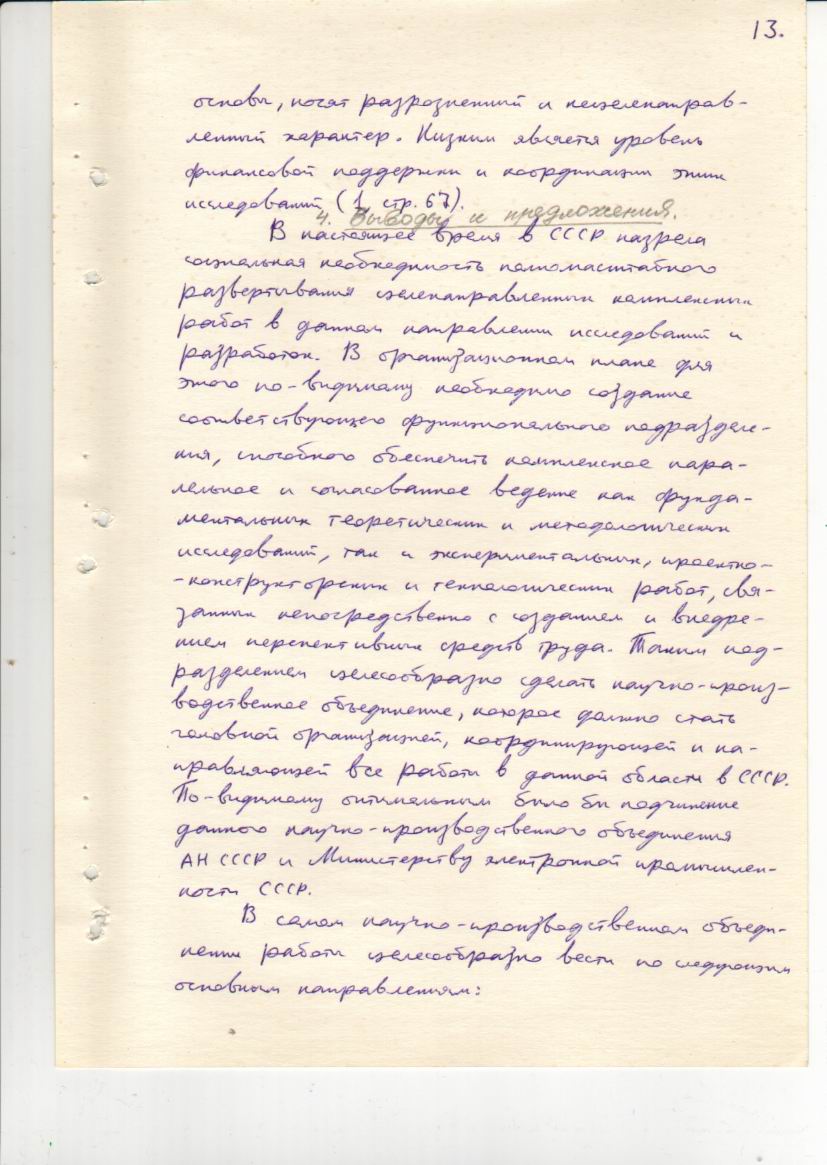 13.
основы, носят разрозненный и нецеленаправ-
ленный характер. Низким является уровень
финансовой поддержки и координации этих
исследований (1, стр. 67).
4. Выводы и предложения.
В настоящее время в СССР назрела
социальная необходимость полномасштабного
развертывания целенаправленных комплексных
работ в данном направлении исследований и
разработок. В организационном плане для
этого по-видимому необходимо создание
соответствующего функционального подразделе-
ния, способного обеспечить комплексное пара-
лельное и согласованное ведение как фунда-
ментальных теоретических и методологических
исследований, так и экспериментальных, проектно-
-конструкторских и технологических работ, свя-
занных непосредственно с созданием и внедре-
нием перспективных средств труда. Таким под-
разделением целесообразно сделать научно-произ-
водственное объединение, которое должно стать
головной организацией, координирующей и на-
правляющей все работы в данной области в СССР.
По-видимому оптимальным было бы подчинение
данного научно-производственного объединения
АН СССР и Министерству электронной промышлен-
ности СССР.
В самом научно-производственном объеди-
нении работы целесообразно вести по следующим
основным направлениям: